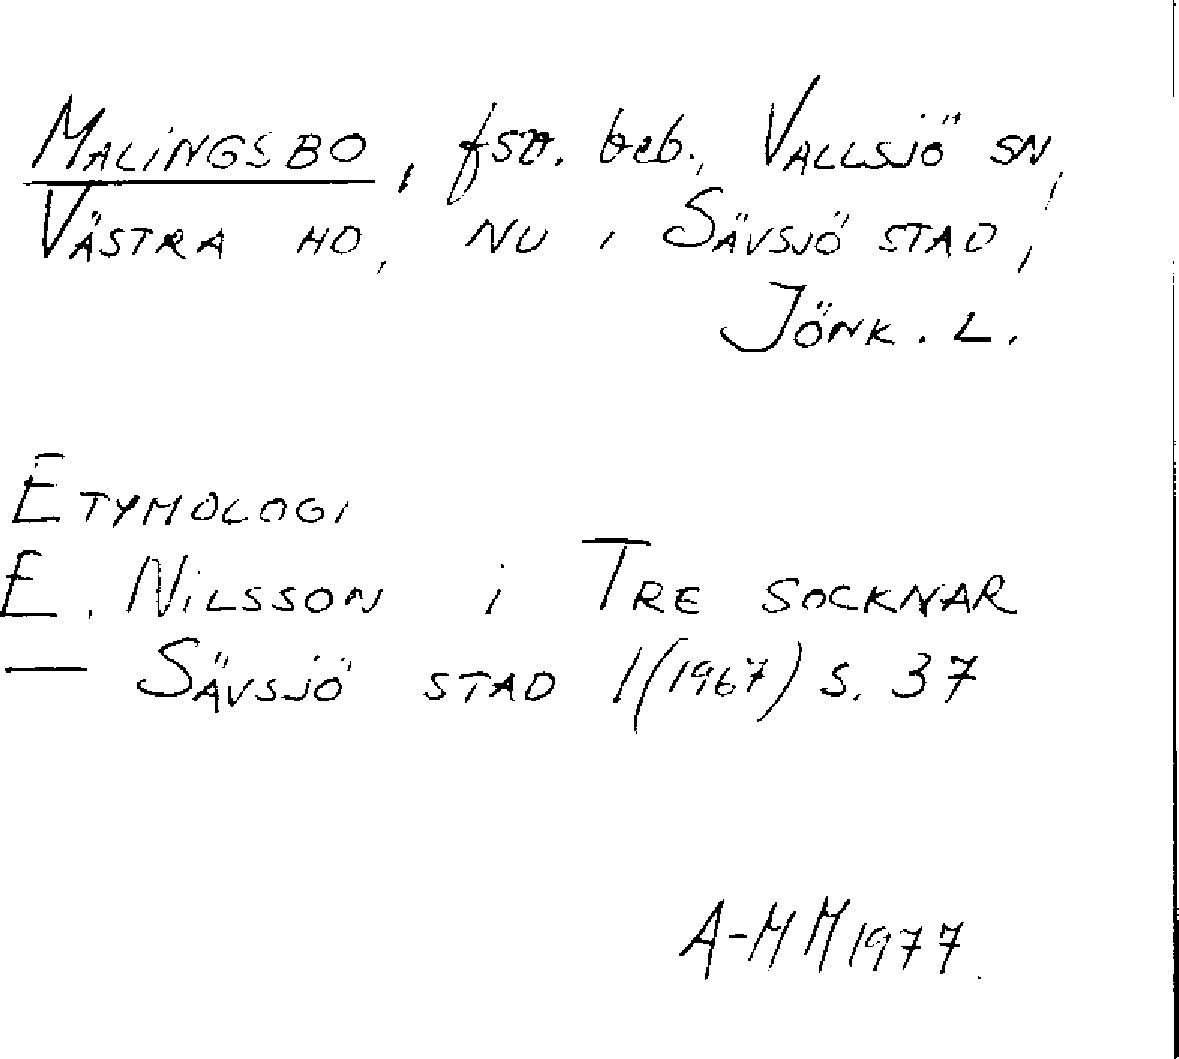 MALINGSBO, fsv. beb., VALLSJÖ SN,
VÄSTRA HD, NU I SÄVSJÖ STAD,
JÖNK. L.
ETYMOLOGI
E. NILSSON i TRE SOCKNAR
— SÄVSJÖ STAD 1(1967) S. 37
A-MM 1977.